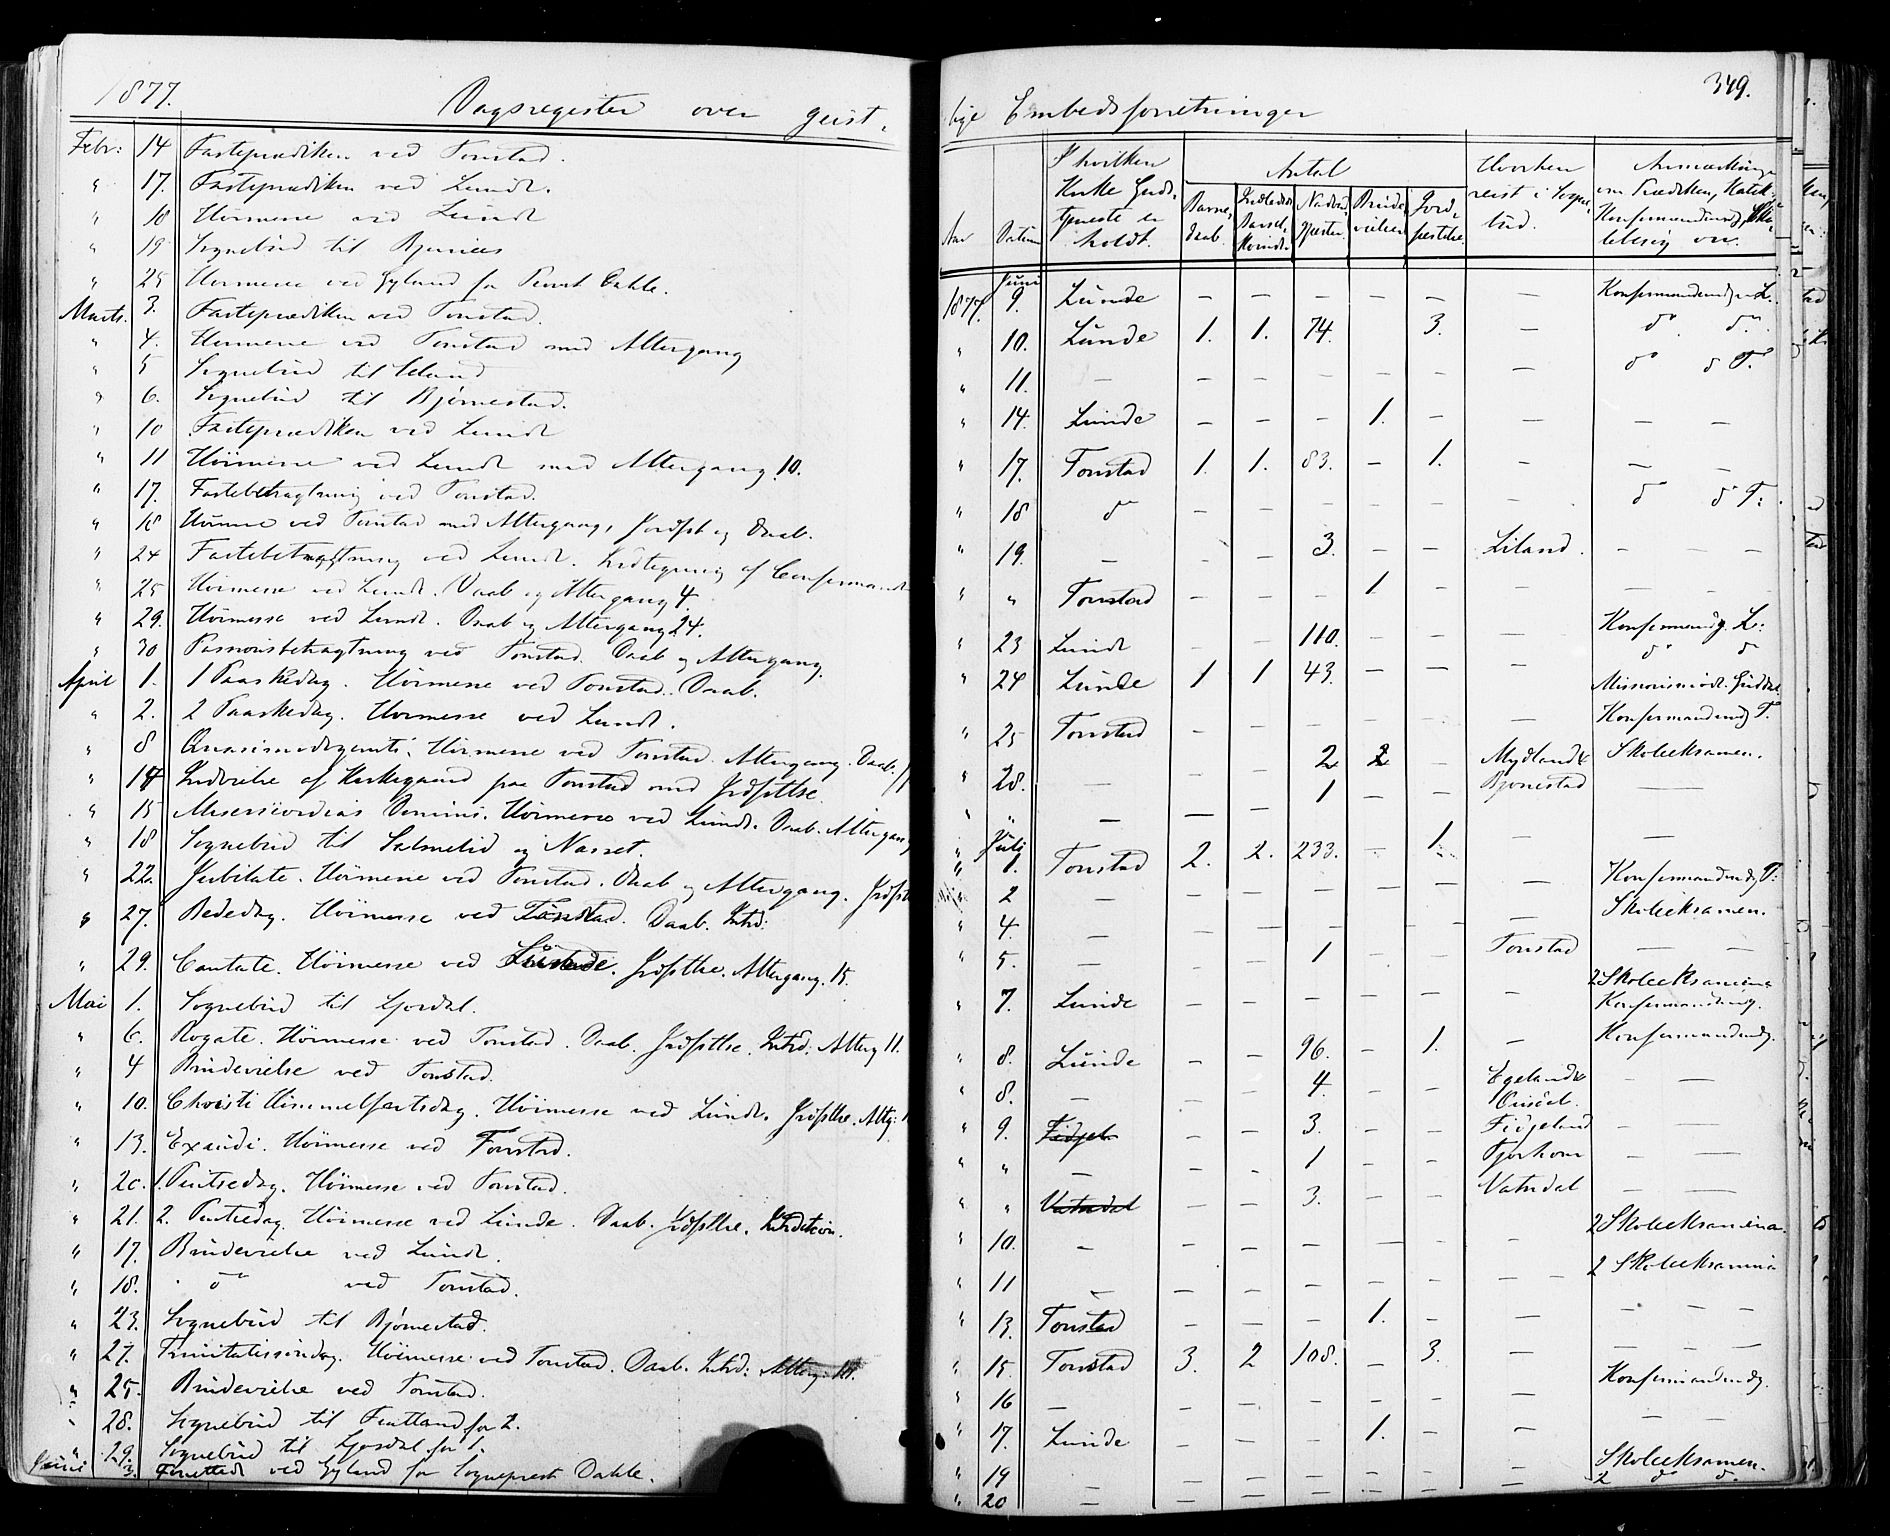 1877.
Dagsregister over geist-
Febr: 14 Fasteprædiken ved Tonstad.
" 17. Fasteprædiken ved Lunde.
" 18 Høimesse ved Lunde
" 19 Sognebud til
" 25 Høimesse ved Gyland for Provst Dahle.
Marts. 3. Fasteprædiken ved Tonstad.
" 4. Høimesse ved Tonstad med Altergang
" 5 Sognebud til
" 6. Sognebud til Bjørnestad.
" 10 Fasteprædiken ved Lunde
" 11 Høimesse ved Lunde med Altergang 10.
" 17. Fastebetragtning ved Tonstad.
" 18 Høimesse ved Tonstad med Altergang, Jordfst og Daab.
" 24 Fastebetragtning ved Lunde. Indtegning af Confirmand
" 25 Høimesse ved Lunde. Daab og Altergang 4.
" 29. Høimesse ved Lunde. Daab og Altergang 24.
" 30 Passionsbetragtning ved Tonstad. Daab og Altergang.
April 1. 1 Paaskedag. Høimesse ved Tonstad. Daab.
" 2. 2 Paaskedag. Høimesse ved Lunde.
" 8 Quasimodogeniti. Høimesse ved Tonstad. Altergang. Daab.
" 14 Indvielse af Kirkegaard paa Tonstad med Jrdfstlse.
" 15 Misericordias Domini. Høimesse ved Lunde. Daab. Altergang
" 18 Sognebud til Salmelid og Næsset.
" 22. Jubilate. Høimesse ved Tonstad. Daab og Altergang. Jrdfst
" 27. Bededag. Høimesse ved Tonstad. Daab. Intrd:
" 29. Cantate. Høimesse ved Lunde. Jrdfstlse. Altergang. 15.
Mai 1. Sognebud til Gjosdal.
" 6. Rogate. Høimesse ved Tonstad. Daab. Jrdfstlse. Intrd: Alterg 11.
" 4 Brudevielse ved Tonstad.
" 10. Christi Himmelfartsdag. Høimesse ved Lunde. Jrdfstlse. Altg:
" 13. Exaudi. Høimesse ved Tonstad.
" 20. 1. Pintsedag. Høimesse ved Tonstad.
" 21. 2. Pintsedag Høimesse ved Lunde. Daab. Jrdfstlse. Introduction.
" 17. Brudevielse ved Lunde.
" 18. do ved Tonstad.
" 23. Sognebud til Bjørnestad.
" 27. Trinitatissøndag. Høimesse ved Tonstad. Daab. Intrd: Alterg:
" 25. Brudevielse ved Tonstad.
" 28. Sognebud til Fintland for 2.
" 29. Sognebud til Gjosdal for 1.
Juni 3. Forrettede ved Gyland for Sogneprest Dahle.
349.
lige Embedsforretninger
Aar Datum I hvilken Kirke Gudstjeneste er holdt. Antal Barnedaab. Indledede Barselkvinder Nadvdgjæster. Brudevielser Jordfæstelse. Hvorhen reist i Sognebud. Anmærkninger om Prædiken, Katek. Konfirmandund.
1877. Juni 9. Lunde — — — — — — Konfirmandund. L.
" 10. Lunde 1. 1. 74. 3. — do do
" 11. — — — — — — — do d T.
" 14. Lunde — — — 1. — — — —
" 17. Tonstad 1. 1. 83. — 1. — — —
" 18 do — — — — — — do d T:
" 19. — — — 3. — — Liland. — — —
" " Tonstad — — — 1 — — — — —
" 23 Lunde — — 110. — — — Konfirmandg. L:
" 24 Lunde 1 1 43. — — — do do
Missionsmøde. Guddal
" 25 Tonstad — — — — — — Konfirmandundg T.
" 28. — — — 2 2 — Mydland & Skoleeksamen.
" " — — — 1 — — Bjonestad —
" Juli 1. Tonstad 2. 2. 233. — 1. — —
" 2 — — — — — — — Konfirmandundg T:
" 4. — — — — — — — Skoleeksamen.
" 5. — — — 1 — — Tonstad — —
" 7. Lunde — — — — — — 2 Skoleeksamina
Konfirmandundg.
" 8. Lunde — — 96. — 1. — Konfirmandundg.
" 8. — — — 4. — — Egeland & — —
" 9. Fidjel. — — 3. — — Fidjeland — —
" " — — — 1 — — Tjørhom — —
" " Vatndal — — 3. — — Vatndal — —
" 10. — — — — — — — 2 Skoleeksamina.
" 11 — — — — — — — 2 Skoleeksamina
" 13. Tonstad — — — 1. — — — — —
" 15. Tonstad 3. 2 108. — 3. — — — —
" 16 — — — — — — — Konfirmandundg.
" 17. Lunde — — — 1. — — — —
" 19 — — — — — — — Skoleeksamen.
" 20 — — — — — — — 2 do do